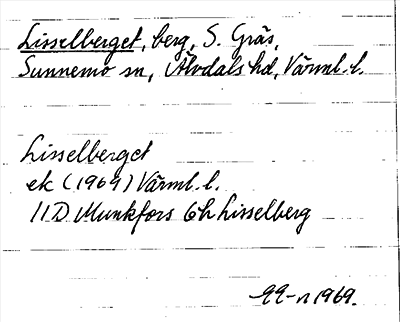 Lisselberget, berg, S. Gräs,
Sunnemo sn, Älvdals hd, Värml. l.
Lisselberget
ek (1969) Värml. l.
11D Munkfors 6h Lisselberg
1969.